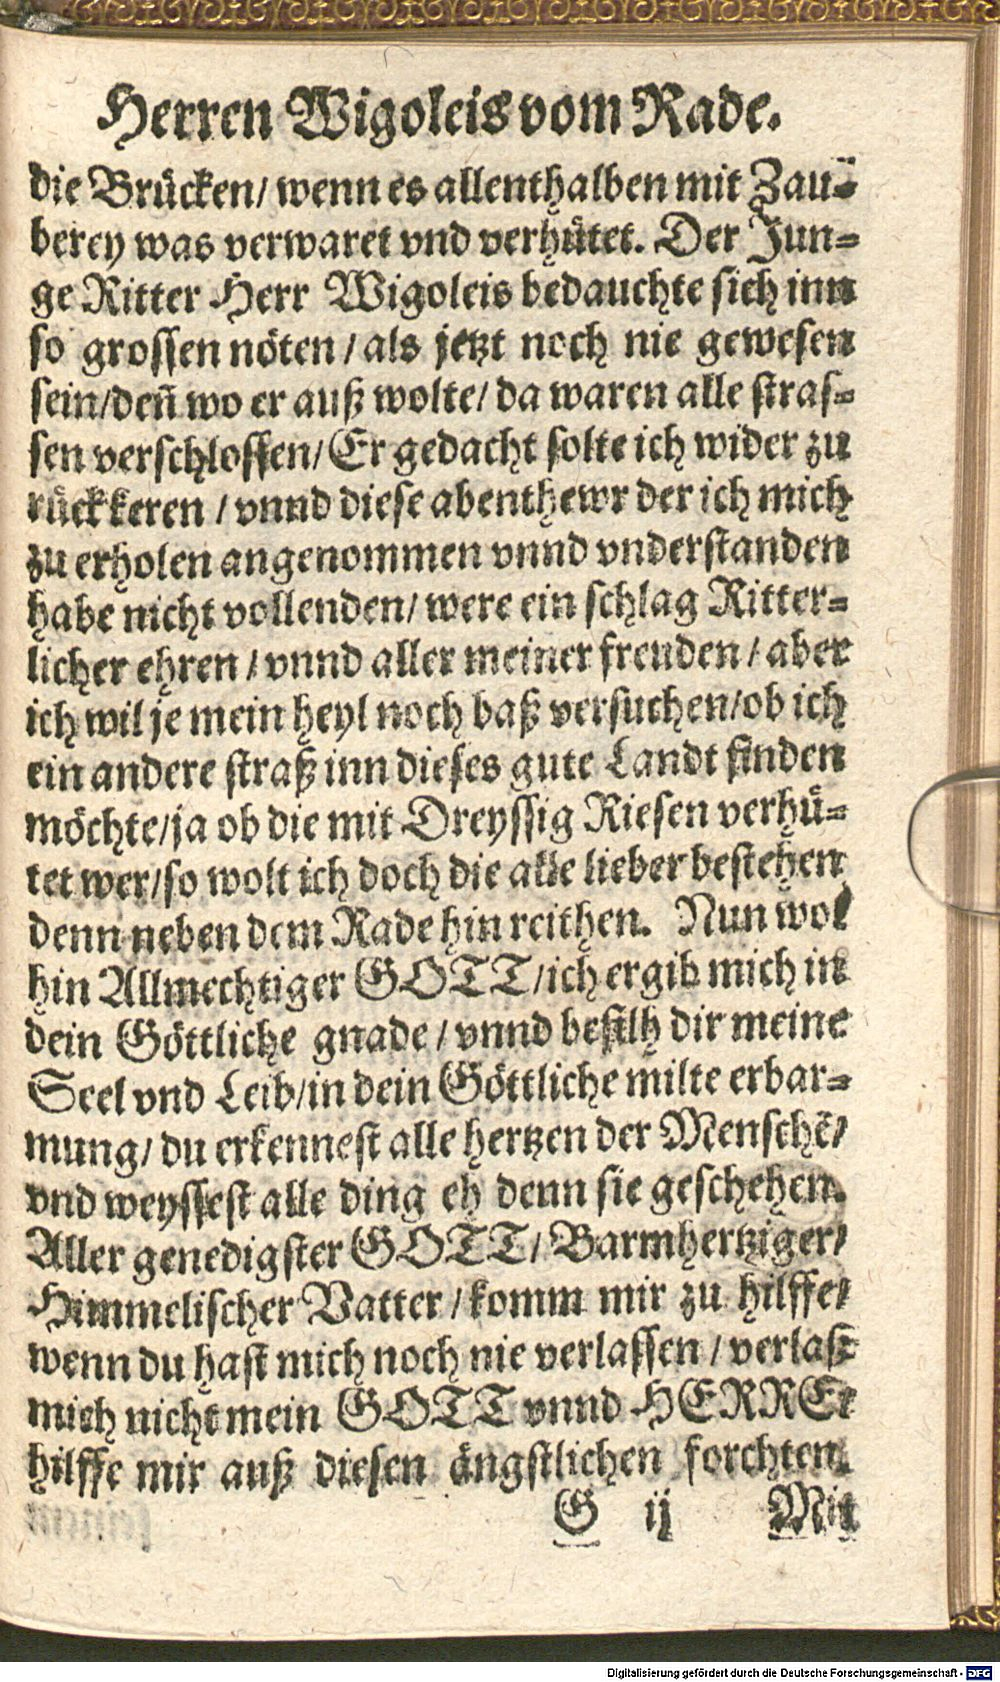 Herren Wigoleis vom Rade.
die Brücken/ wenn es allenthalben mit Zau-
berey was verwaret vnd verhütet. Der Jun-
ge Ritter Herr Wigoleis bedauchte sich inn
so grossen nöten / als jetzt noch nie gewesen
sein/deñ wo er auß wolte/ da waren alle stras-
sen verschlossen/ Er gedacht solte ich wider zu
rück keren / vnnd diese abenthewr der ich mich
zu erholen angenommen vnnd vnderstanden
habe nicht vollenden/ were ein schlag Ritter-
licher ehren / vnnd aller meiner freuden / aber
ich wil je mein heyl noch baß versuchen/ob ich
ein andere straß inn dieses gute Landt finden
möchte/ja ob die mit Dreyssig Riesen verhü-
tet wer/so wolt ich doch die alle lieber bestehen
denn neben dem Rade hin reithen. Nun wol
hin Allmechtiger GOTT/ich ergib mich in
dein Göttliche gnade / vnnd befilh dir meine
Seel vnd Leib/in dein Göttliche milte erbar-
mung/ du erkennest alle hertzen der Menschẽ/
vnd weyssest alle ding eh denn sie geschehen.
Aller genedigster GOTT/ Barmhertziger/
Himmelischer Vatter / komm mir zu hilffe/
wenn du hast mich noch nie verlassen / verlaß
mich nicht mein GOTT vnnd HERRE
hilffe mir auß diesen ängstlichen forchten.
G ij Mit
Digitalisierung gefördert durch die Deutsche Forschungsgemeinschaft - DFG